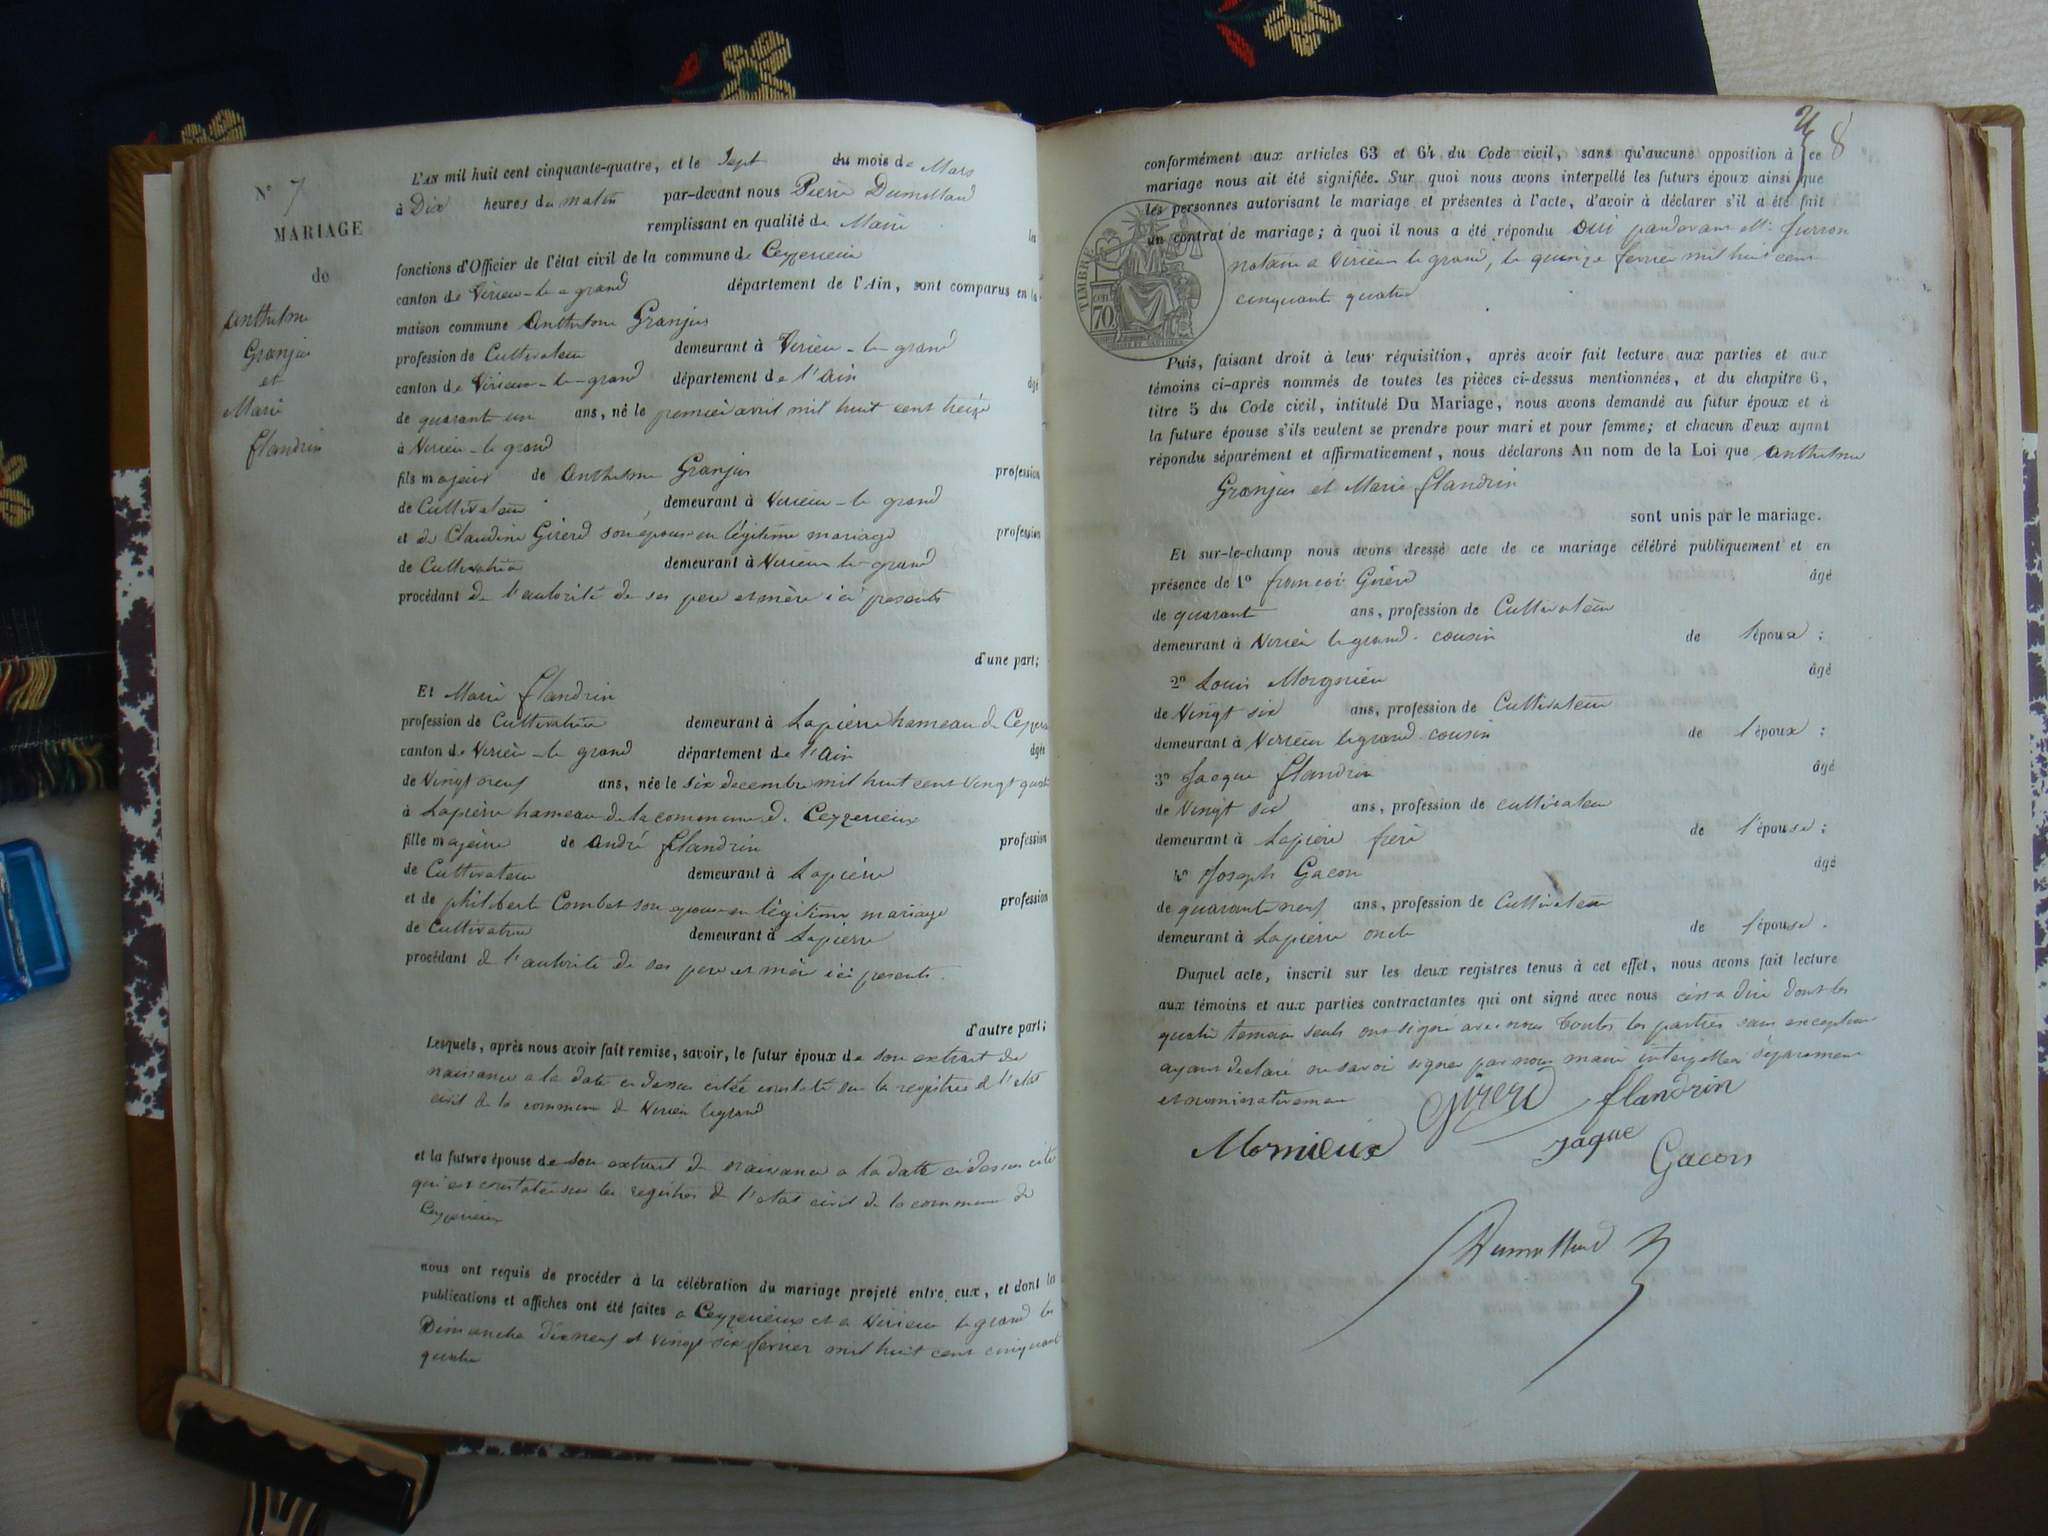 N° 7
MARIAGE
de
Anthelme
Granjus
et
Marie
flandrin
L'AN mil huit cent cinquante-quatre, et le Sept du mois de Mars
à Dix heures du matin par-devant nous Pierre Dumolland
remplissant en qualité de Maire les
fonctions d'Officier de l'état civil de la commune de Ceyzerieux
canton de Virieu-le-grand département de l'Ain, sont comparus en la
maison commune Anthelme Granjus
profession de Cultivateur demeurant à Virieu-le-grand
canton de Virieu-le-grand département de l'Ain âgé
de quarant un ans, né le premier avril mil huit cent treize
à Virieu-le grand
fils majeur de Anthelme Granjus profession
de Cultivateur demeurant à Virieu-le grand
et de Claudine Girerd son épouse en légitime mariage profession
de Cultivatrice demeurant à Virieu le-grand
procédant de l'autorité de ses pere et mère ici presents
d'une part;
Et Marie flandrin
profession de Cultivatrice demeurant à Lapierre hameau de Ceyzerieux
canton de Virieu-le grand département de l'Ain âgée
de Vingt neuf ans, née le six decembre mil huit cent Vingt quatre
à Lapierre hameau de la commune de Ceyzerieux
fille majeure de André flandrin profession
de Cultivateur demeurant à Lapierre
et de philiberte Combet son epouse en légitime mariage profession
de Cultivatrice demeurant à Lapierre
procédant de l'autorité de ses pere et mère ici presents.
d'autre part;
Lesquels, après nous avoir fait remise, savoir, le futur époux de son extrait de
naissance a la date ci dessus citée constaté sur les registres de l'etat
civil de la commune de Virieu legrand
et la future épouse de son extrait de naissance a la date ci dessus cité
qui est constatée sur les registres de l'etat civil de la commune de
Ceyzerieux
nous ont requis de procéder à la célébration du mariage projeté entre eux, et dont les
publications et affiches ont été faites a Ceyzerieux et a Virieu le grand les
Dimanche dix neuf et vingt six fevrier mil huit cent cinquante
quatre
8
conformément aux articles 63 et 64 du Code civil, sans qu'aucune opposition à ce
mariage nous ait été signifiée. Sur quoi nous avons interpellé les futurs époux ainsi que
les personnes autorisant le mariage et présentes à l'acte, d'avoir à déclarer s'il a été fait
un contrat de mariage; à quoi il nous a été répondu Oui pardevant Me furron
notaire a Virieu le grand, le quinze fevrier mil huit cent
cinquante quatre
TIMBRE
70
Puis, faisant droit à leur réquisition, après avoir fait lecture aux parties et aux
témoins ci-après nommés de toutes les pièces ci-dessus mentionnées, et du chapitre 6,
titre 5 du Code civil, intitulé Du Mariage, nous avons demandé au futur époux et à
la future épouse s'ils veulent se prendre pour mari et pour femme; et chacun d'eux ayant
répondu séparément et affirmativement, nous déclarons Au nom de la Loi que Anthelme
Granjus et Marie flandrin
sont unis par le mariage.
Et sur-le-champ nous avons dressé acte de ce mariage célébré publiquement et en
présence de 1° françois Girerd âgé
de quarant ans, profession de Cultivateur
demeurant à Virieu le grand cousin de l'époux;
2° Louis Morgnieu âgé
de Vingt six ans, profession de Cultivateur
demeurant à Virieu legrand cousin de l'époux;
3° Jacque flandrin âgé
de Vingt six ans, profession de cultivateur
demeurant à Lapierre frere de l'épouse;
4° Joseph Gacon âgé
de quarante neuf ans, profession de Cultivateur
demeurant à Lapierre oncle de l'épouse.
Duquel acte, inscrit sur les deux registres tenus à cet effet, nous avons fait lecture
aux témoins et aux parties contractantes qui ont signé avec nous c'est a dire dont les
quatre temoin seuls ont signé avec nous toutes les parties sans exception
ayant declaré ne savoir signer par nous maire interpellées séparément
et nominativement
Girerd flandrin
jaque
Mornieux Gacon
Dumolland